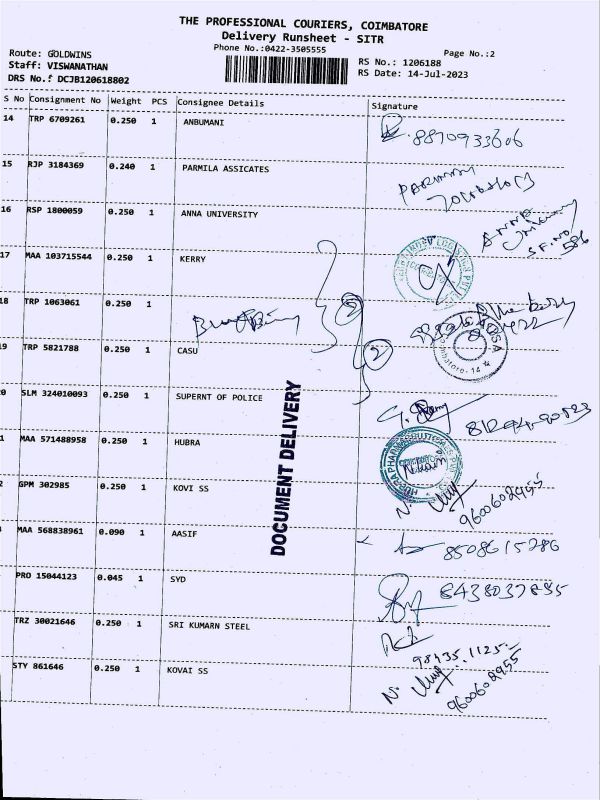 THE PROFESSIONAL COURIERS, COIMBATORE
Delivery Runsheet - SITR
Phone No.:0422-3505555
Page No.:2
Route: GOLDWINS
RS No.: 1206188
Staff: VISWANATHAN
RS Date: 14-Jul-2023
DRS No.: DCJB120618802
S No Consignment No Weight PCS Consignee Details Signature
14 TRP 6709261 0.250 1 ANBUMANI
8870933606
15 RJP 3184369 0.240 1 PARMILA ASSICATES
16 RSP 1800059 0.250 1 ANNA UNIVERSITY
17 MAA 103715544 0.250 1 KERRY
18 TRP 1063061 0.250 1
2
19 TRP 5821788 0.250 1 CASU
2
0 SLM 324010093 0.250 1 SUPERNT OF POLICE
1 MAA 571488958 0.250 1 HUBRA
2 GPM 302985 0.250 1 KOVI SS
9600602955
MAA 568838961 0.090 1 AASIF
8508615286
PRO 15044123 0.045 1 SYD
8438037885
TRZ 30021646 0.250 1 SRI KUMARN STEEL
98435 11125
STY 861646 0.250 1 KOVAI SS
9600602955
DOCUMENT DELIVERY